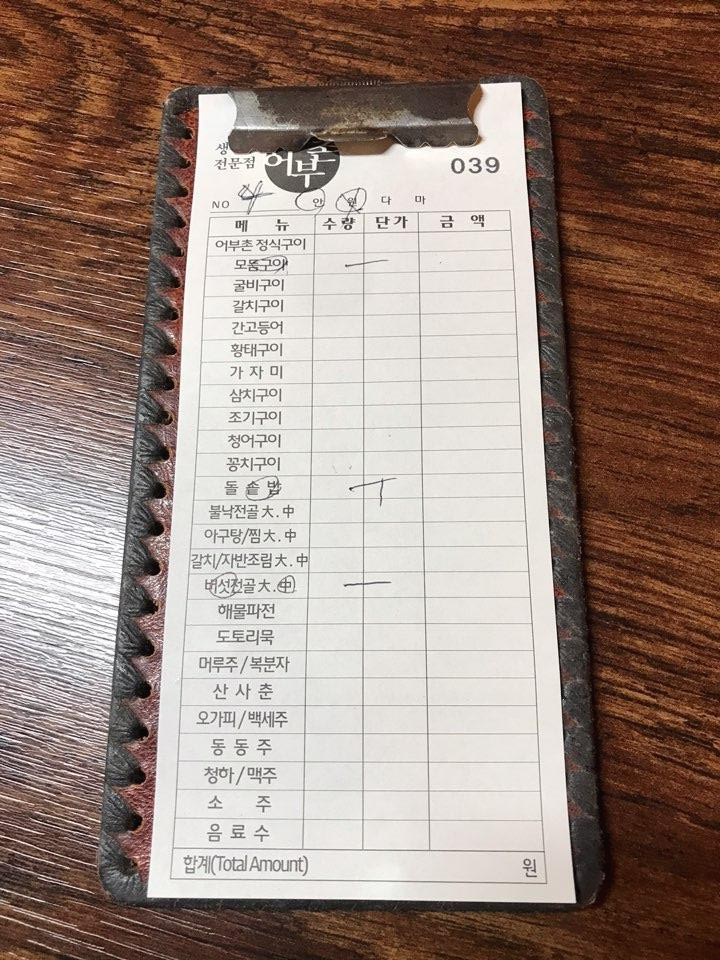 생
전문점 어부
039
NO 4 안 다 마
메 뉴 수량 단가 금 액
어부촌 정식구이
모둠구이 一
굴비구이
갈치구이
간고등어
황태구이
가 자 미
삼치구이
조기구이
청어구이
꽁치구이
돌 솥 밥 ㅜ
불낙전골 大.中
아구탕/찜 大.中
갈치/자반조림 大.中
버섯전골 大.中 一
해물파전
도토리묵
머루주/복분자
산 사 춘
오가피/백세주
동 동 주
청하/맥주
소 주
음 료 수
합계(Total Amount) 원